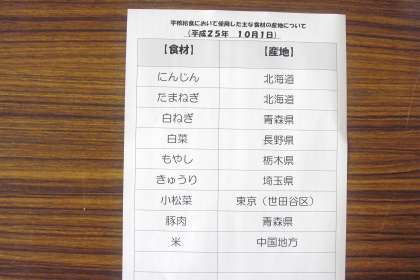 学校給食において使用した主な食材の産地について
(平成25年　10月1日)
【食材】　【産地】
にんじん　北海道
たまねぎ　北海道
白ねぎ　青森県
白菜　長野県
もやし　栃木県
きゅうり　埼玉県
小松菜　東京（世田谷区）
豚肉　青森県
米　中国地方